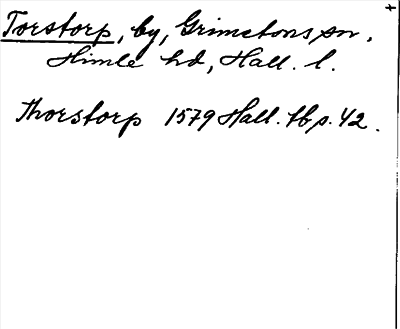 Torstorp, by, Grimetons sn.
Himle hd, Hall. l.
Thorstorp 1579 Hall. tb p. 42.